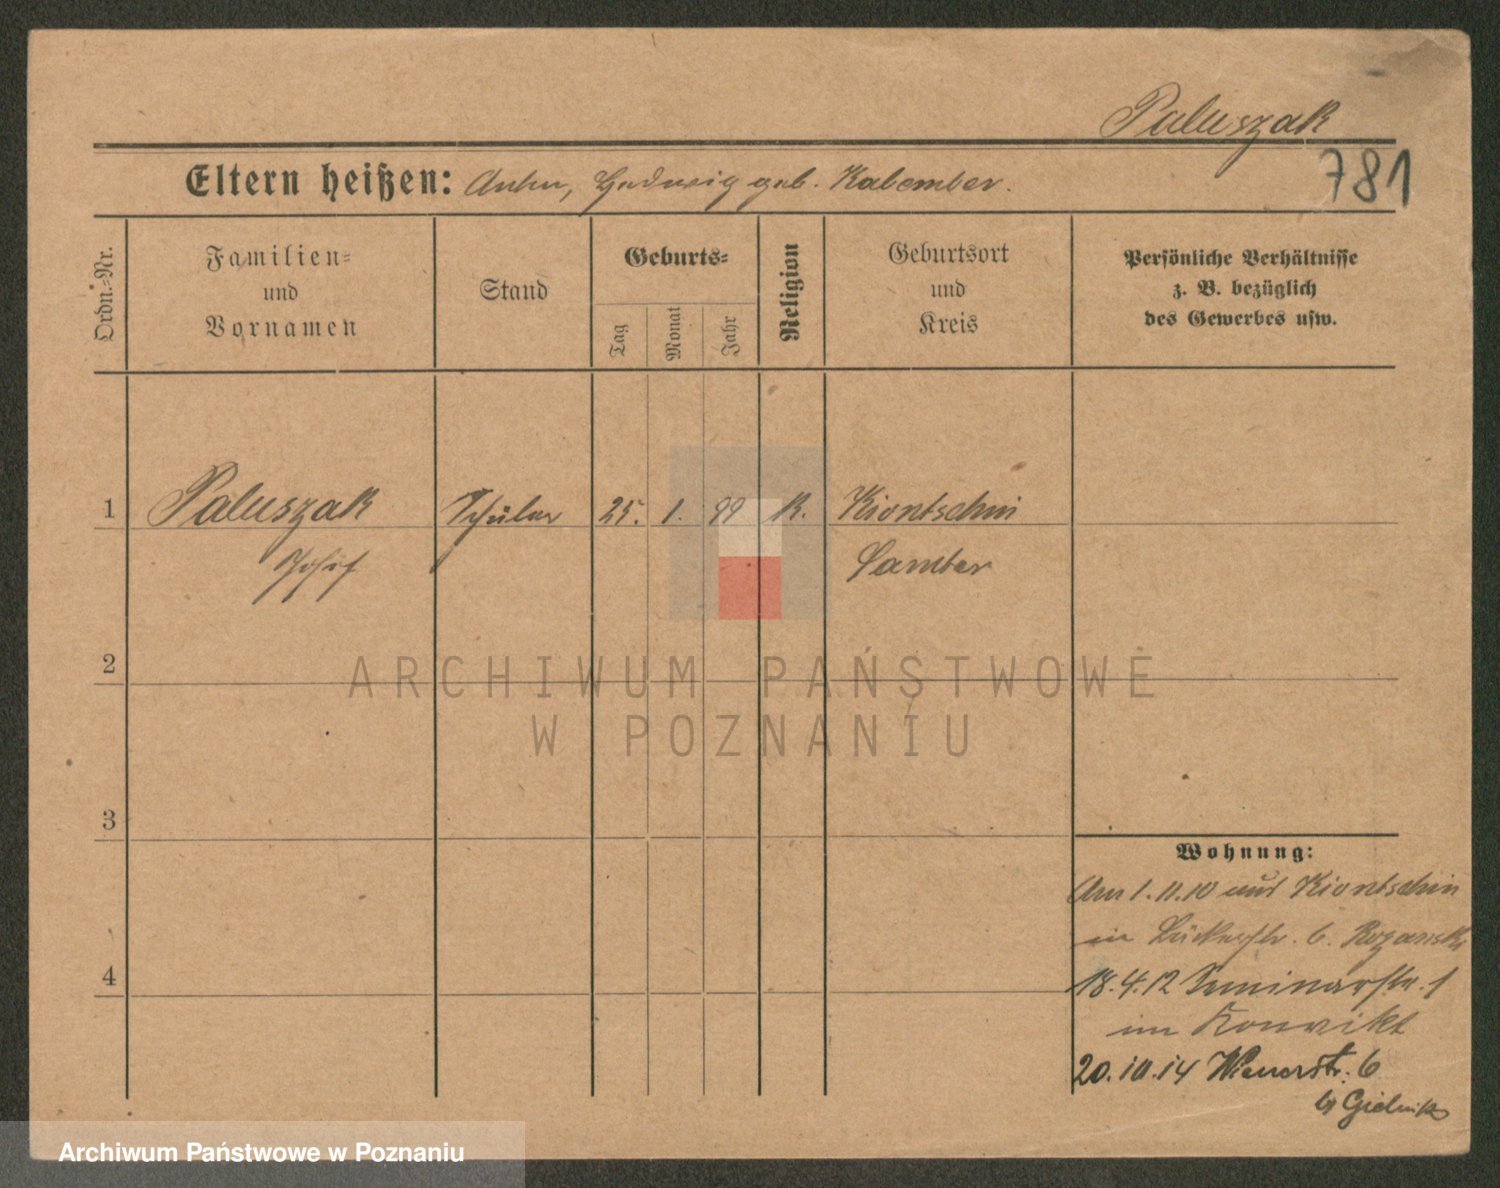 Paluszak
781
Eltern heißen: Anton, Hedwig geb. Kalember.
Ordn.-Nr.
Familien-
und
Vornamen
Stand
Geburts-
Tag
Monat
Jahr
Religion
Geburtsort
und
Kreis
Persönliche Verhältnisse
z. B. bezüglich
des Gewerbes usw.
1 Paluszak Schüler 25. 1. 99 K. Kiontschin
Josef Samter
2
ARCHIWUM PAŃSTWOWE
W POZNANIU
3
Wohnung:
Am 1.11.10 aus Kiontschin
in 6. Rozanski
4
18.4.12 Seminarstr. 1
im Konvikt
20.10.14 Wienerstr. 6
b/
Archiwum Państwowe w Poznaniu